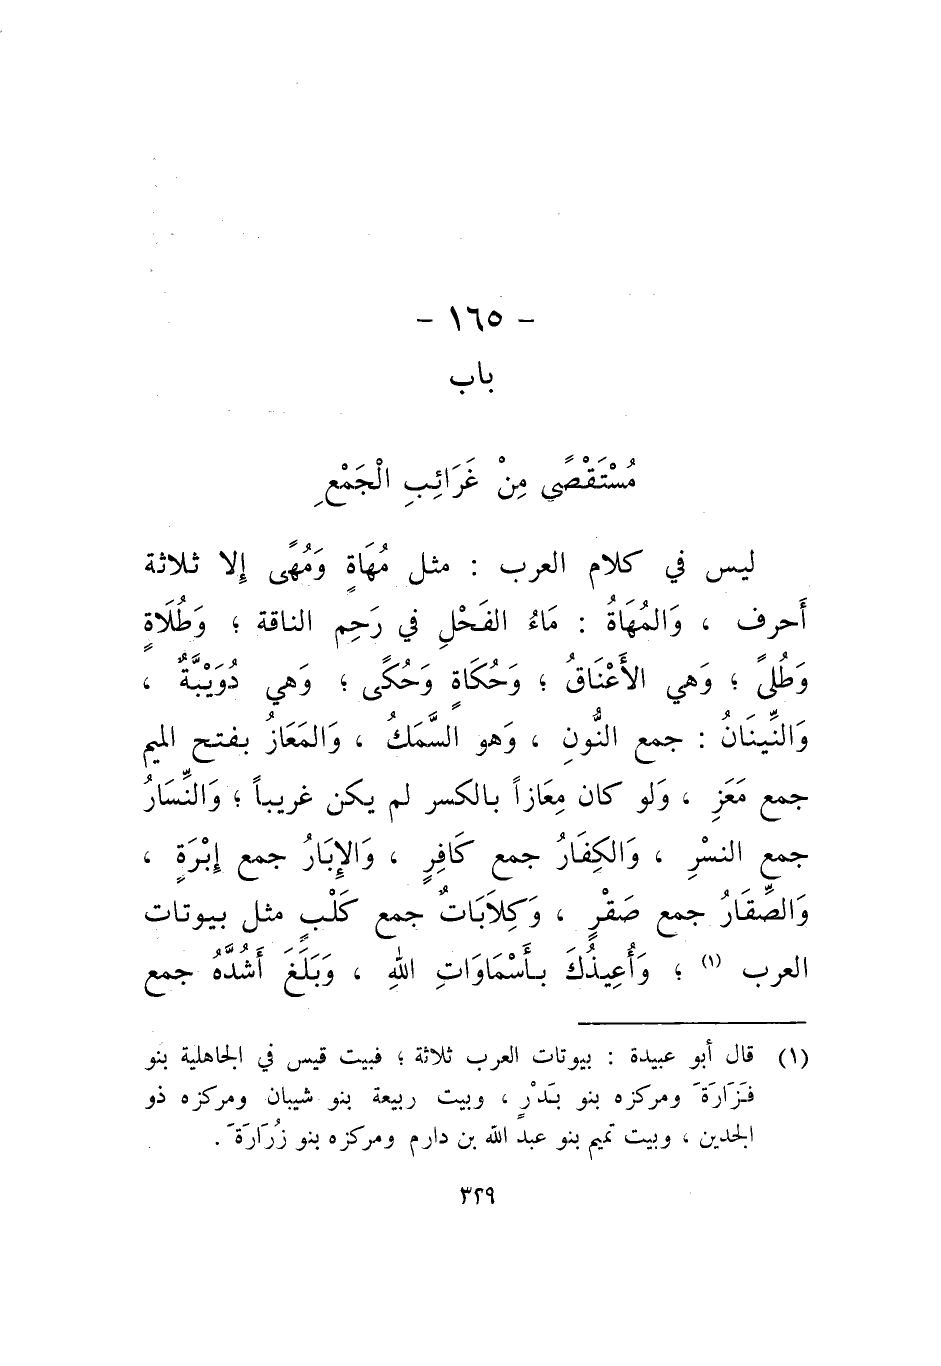 - ١٦٥ -
باب
مُسْتَقْصًى مِنْ غَرَائِبِ الْجَمْعِ
ليس في كلام العرب : مثل مُهَاةٍ وَمُهًى إلا ثلاثة
أَحرف ، وَالمُهَاةُ : مَاءُ الفَحْلِ في رَحِمِ الناقة ؛ وَطُلَاةٍ
وَطُلىً ؛ وَهي الأَعْنَاقُ ؛ وَحُكَاةٍ وَحُكًى ؛ وَهي دُوَيْبَّةٌ ،
وَالنِّينَانُ : جمع النُّونِ ، وَهو السَّمَكُ ، وَالمَعَازُ بفتح الميم
جمع مَعَزِ ، وَلو كان مِعَازاً بالكسر لم يكن غريباً ؛ وَالنِّسَارُ
جمع النسْرِ ، وَالكِفَارُ جمع كَافِرٍ ، وَالإِبَارُ جمع إِبْرَةٍ ،
وَالصِّقَارُ جمع صَقْرٍ ، وَكِلاَبَاتٌ جمع كَلْبٍ مثل بيوتات
العرب (١) ؛ وَأُعِيذُكَ بِأَسْمَاوَاتِ اللهِ ، وَبَلَغَ أَشُدَّهُ جمع
(١) قال أبو عبيدة : بيوتات العرب ثلاثة ؛ فبيت قيس في الجاهلية بنو
فَزَارَةَ ومركزه بنو بَدْرٍ ، وبيت ربيعة بنو شيبان ومركزه ذو
الجدين ، وبيت تميم بنو عبد الله بن دارم ومركزه بنو زُرَارَةَ .
٣٢٩